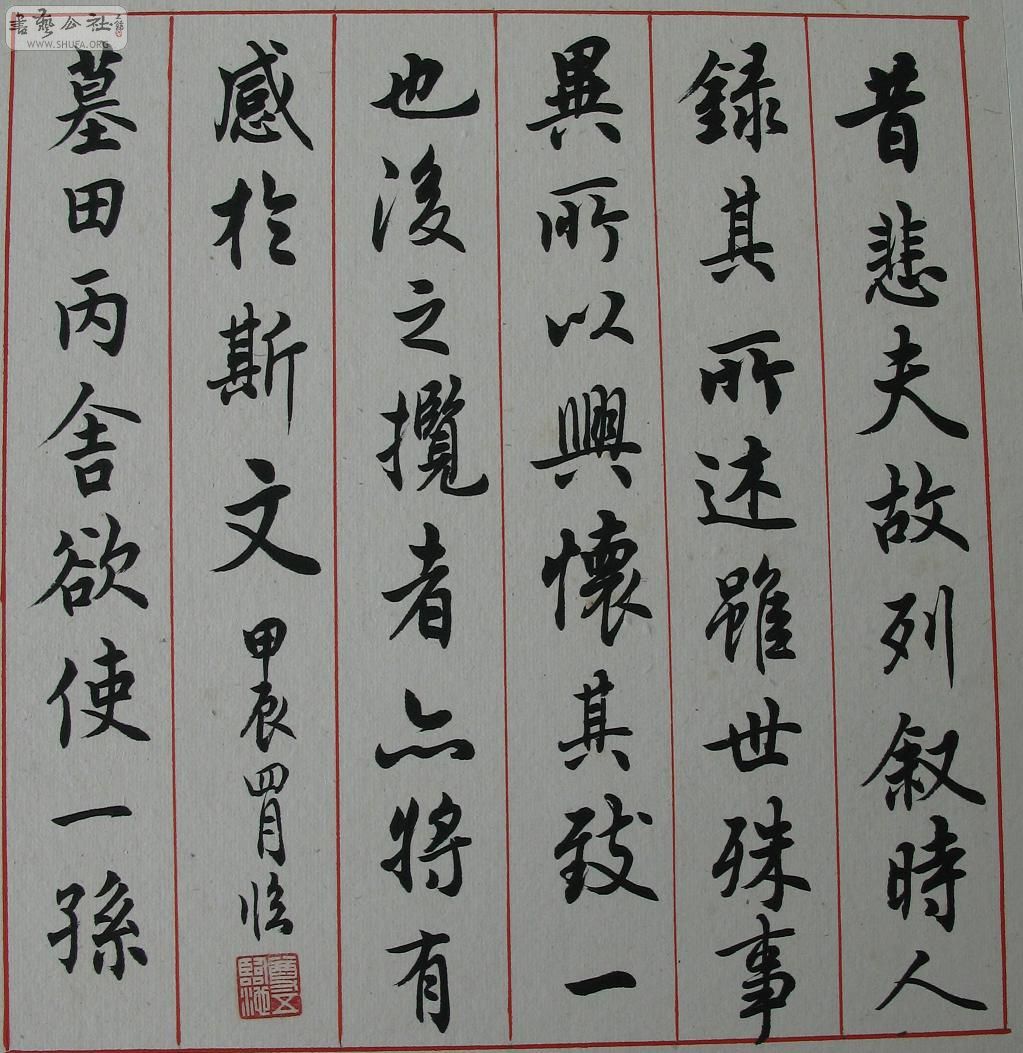 昔悲夫故列叙時人
録其所述雖世殊事
異所以興懷其致一
也後之攬者亦將有
感於斯文 甲辰四月臨
墓田丙舍欲使一孫
書藝公社
WWW.SHUFA.ORG